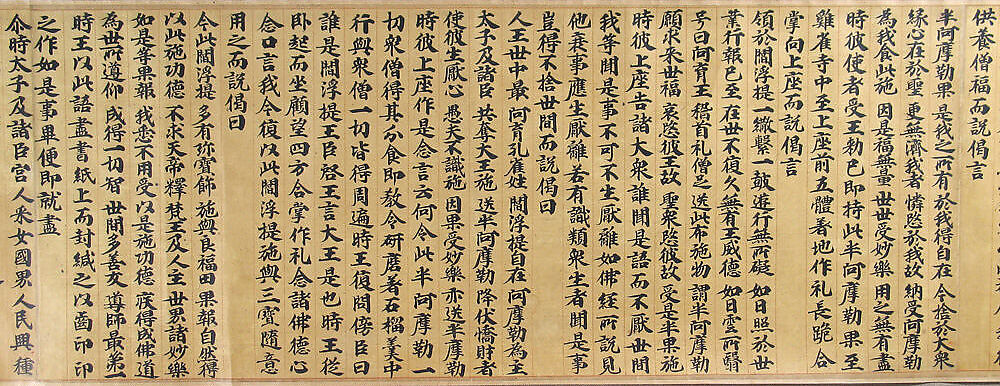 供養僧福而說偈言
半阿摩勒果 是我之所有 於我得自在 今捨於大衆
緣心在於聖 更無濟我者 憐愍於我故 納受阿摩勒
為我食此施 因是福無量 世世受妙樂 用之無有盡
時彼使者受王勅已即持此半阿摩勒果至
雞雀寺中至上座前五體著地作礼長跪合
掌向上座而說偈言
領於閻浮提 一繖繫一皷 遊行無所礙 如日照於世
業行報已至 在世不復久 無有王威德 如日雲所翳
号曰阿育王 稽首礼僧足 送此布施物 謂半阿摩勒
願求來世福 哀愍彼王故 聖衆愍彼故 受是半果施
時彼上座告諸大衆誰聞是語而不厭世間
我等聞是事不可不生厭離如佛經所說見
他衰事應生厭離若有識類衆生者聞是事
豈得不捨世間而說偈曰
人王世中最 阿育孔雀姓 閻浮提自在 阿摩勒為主
太子及諸臣 共奪大王施 送半阿摩勒 降伏憍財者
使彼生厭心 愚夫不識施 因果受妙樂 亦送半摩勒
時彼上座作是念言云何令此半阿摩勒一
切衆僧得其分食即教令研磨著石榴羹中
行與衆僧一切皆得周遍時王復問傍臣曰
誰是閻浮提王臣啓王言大王是也時王從
卧起而坐顧望四方合掌作礼念諸佛德心
念口言我今復以此閻浮提施與三寶隨意
用之而說偈曰
今此閻浮提 多有珎寶飾 施與良福田 果報自然得
以此施功德 不求天帝釋 梵王及人主 世界諸妙樂
如是等果報 我悉不用受 以是施功德 疾得成佛道
為世所尊仰 成得一切智 世間多善友 導師最第一
時王以此語盡書紙上而封緘之以齒印印
之作如是事畢便即就盡
尒時太子及諸臣宮人婇女國界人民興種